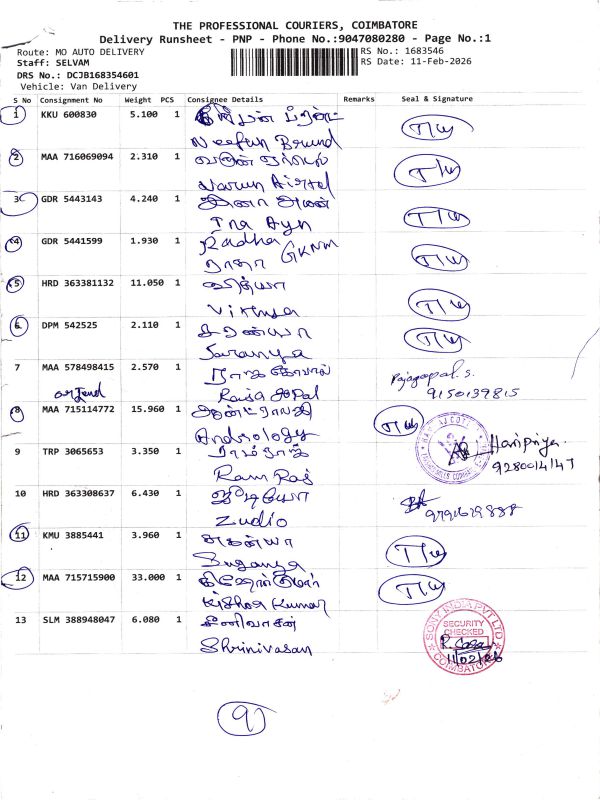 THE PROFESSIONAL COURIERS, COIMBATORE
Delivery Runsheet - PNP - Phone No.:9047080280 - Page No.:1
Route: MO AUTO DELIVERY
RS No.: 1683546
Staff: SELVAM
RS Date: 11-Feb-2026
DRS No.: DCJB168354601
Vehicle: Van Delivery
S No Consignment No Weight PCS Consignee Details Remarks Seal & Signature
1 KKU 600830 5.100 1
T/W
2 MAA 716069094 2.310 1 வருண் ஏர்டெல்
Varun Airtel T/W
3 GDR 5443143 4.240 1
T/W
4 GDR 5441599 1.930 1 Radha
ராதா GKNM T/W
5 HRD 363381132 11.050 1 வித்யா
T/W
6 DPM 542525 2.110 1 சரண்யா T/W
Saranya
7 MAA 578498415 2.570 1 ராஜகோபால் Rajagopal. S.
Raja Gopal 9150139815
8 MAA 715114772 15.960 1 T/W
Andrology Haripriya
9280014147
9 TRP 3065653 3.350 1 ராம்ராஜ்
Ram Raj
10 HRD 363308637 6.430 1 ஜூடியோ
Zudio
11 KMU 3885441 3.960 1 சுகன்யா T/W
Suganya
12 MAA 715715900 33.000 1 கிஷோர் குமார் T/W
Kishor Kumar
13 SLM 388948047 6.080 1 சீனிவாசன்
Shrinivasan
SONY INDIA PVT LTD
SECURITY
CHECKED
11/02/26
COIMBATORE
9